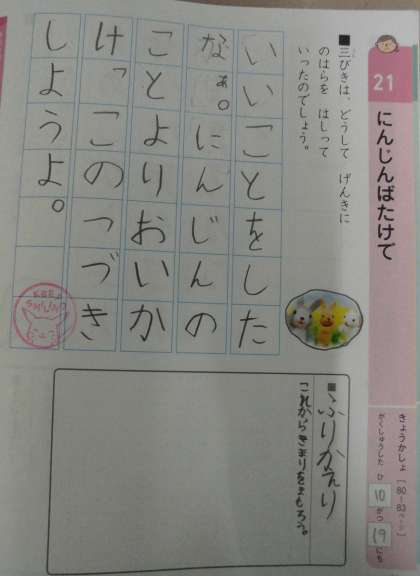 21
にんじんばたけで
■三びきは、どうして げんきに
のはらを はしって
いったのでしょう。
いいことをした
なぁ。にんじんの
ことよりおいか
けっこのつづき
しようよ。
きょうかしょ[80-83ページ]
がくしゅうした ひ 10 がつ 19 にち
■ふりかえり
これからきまりをまもろう。